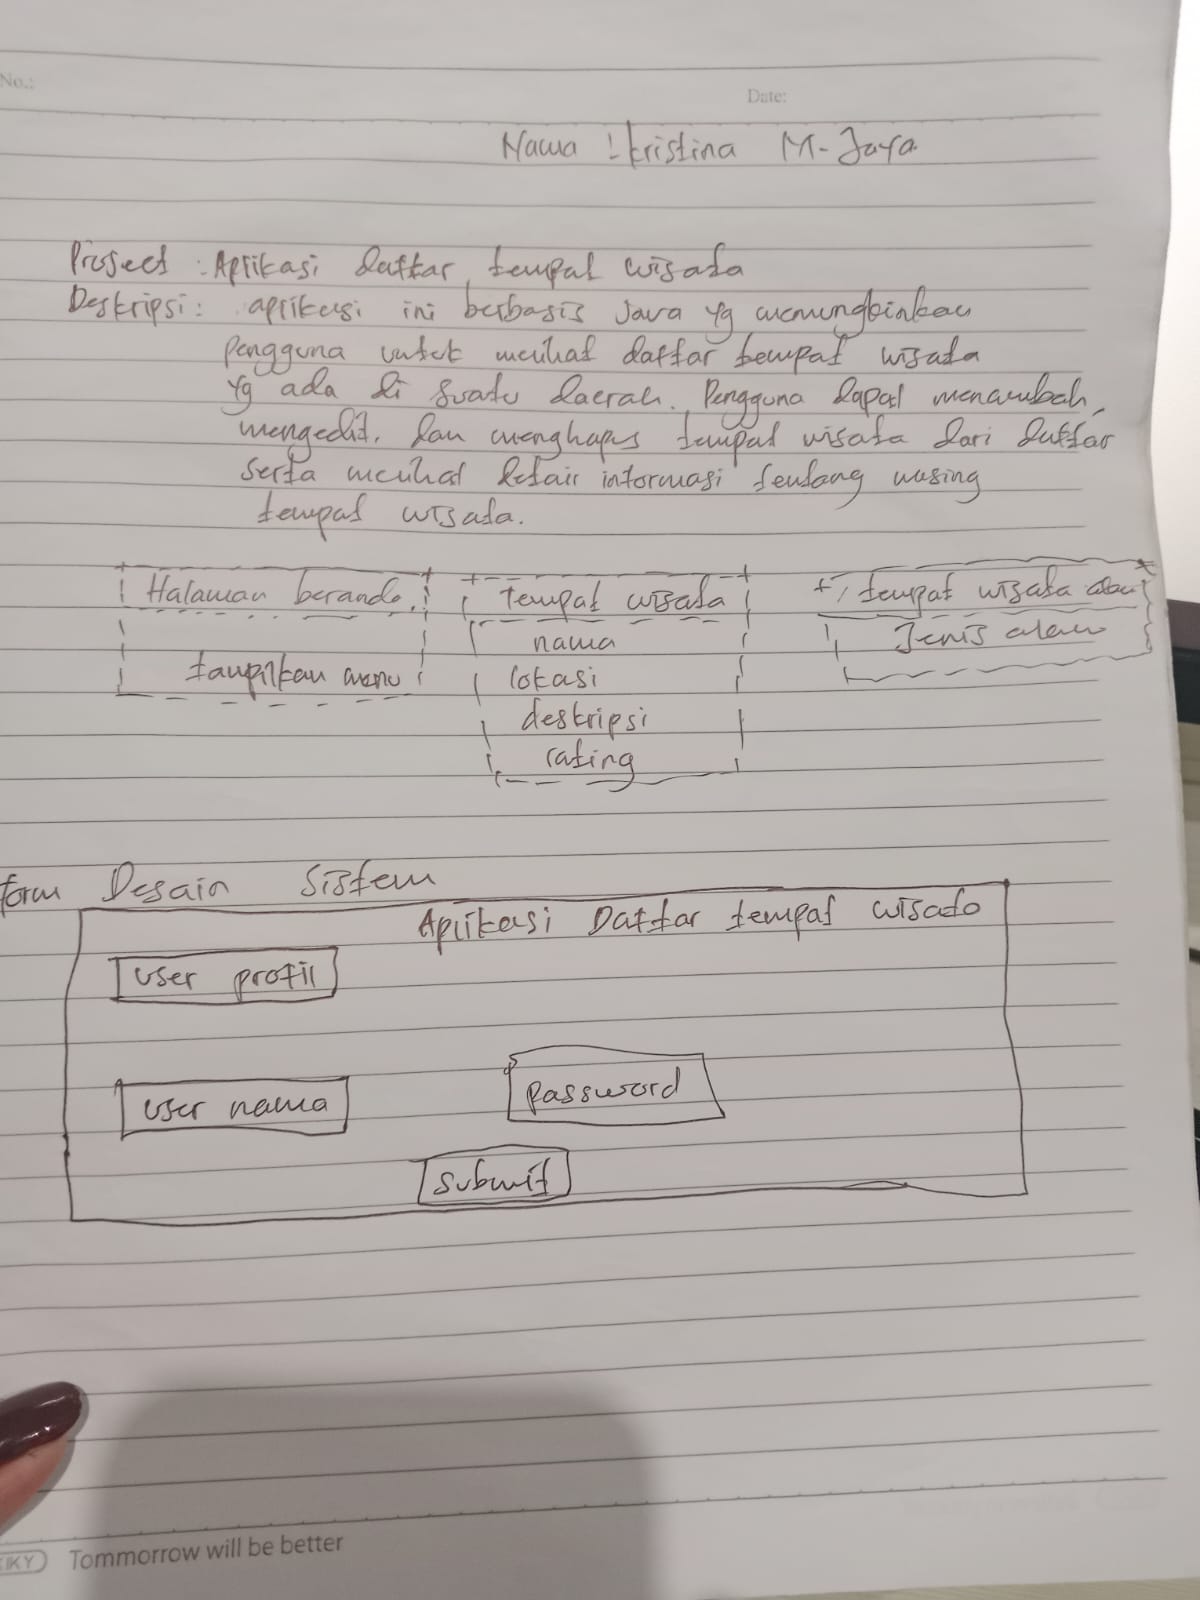 No.:
Date:
Nama : kristina M. Jaya
Project : Aplikasi daftar tempat wisata
Deskripsi : aplikasi ini berbasis Java yg memungkinkan
pengguna untuk melihat daftar tempat wisata
yg ada di suatu daerah. Pengguna dapat menambah,
mengedit, dan menghapus tempat wisata dari daftar
serta melihat detail informasi tentang masing
tempat wisata.
Halaman beranda
tampilkan menu
tempat wisata
nama
lokasi
deskripsi
rating
tempat wisata alam
Jenis alam
form Desain Sistem
Aplikasi Daftar tempat wisata
user profil
user nama
password
submit
KIKY
Tommorrow will be better